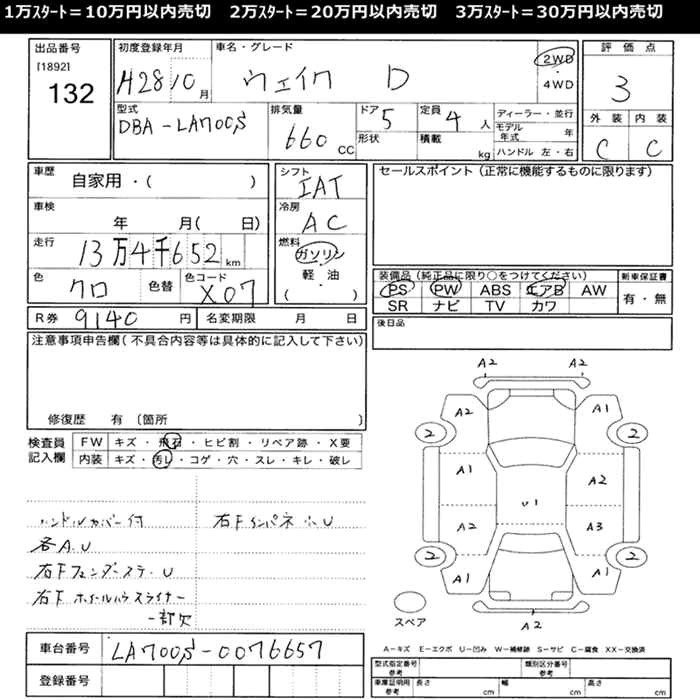 1万スタート＝10万円以内売切　2万スタート＝20万円以内売切　3万スタート＝30万円以内売切
出品番号
[1892]
132
初度登録年月
H28 10月
車名・グレード
ウェイク D
2WD
・
4WD
評価点
3
外装 内装
C C
型式
DBA-LA700S
排気量
660 CC
ドア
5
形状
定員
4 人
積載
kg
ディーラー・並行
モデル年式 年
ハンドル 左・右
車歴
自家用・( )
車検
年 月( 日)
走行
13万4千652 km
色
クロ
色替
色コード
X07
シフト
IAT
冷房
AC
燃料
ガソリン
・
軽・油
( )
セールスポイント（正常に機能するものに限ります）
装備品（純正品に限り○をつけてください）
PS PW ABS エアB AW
SR ナビ TV カワ
新車保証書
有・無
後日品
R券 9140 円 名変期限 月 日
注意事項申告欄（不具合内容等は具体的に記入して下さい）
修復歴 有 〔箇所 〕
検査員
記入欄
FW キズ・飛石・ヒビ割・リペア跡・X要
内装 キズ・汚レ・コゲ・穴・スレ・キレ・破レ
ハンドルカバー付
各A.U
右Fフェンダーステ.U
右Fホイールハウスライナー
一部欠
右Fインパネ小U
A2 A2
A2 A1
2 2
A1 A2
U1
A2 A3
2 2
A1 A1
A2
スペア
車台番号 LA700S-0076657
登録番号
A－キズ E－エクボ U－凹み W－補修跡 S－サビ C－腐食 XX－交換済
型式指定番号 参考
類別区分番号 参考
車庫証明用 参考
長さ cm 幅 cm 高さ cm